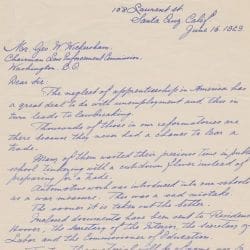 108 Laurent St.
Santa Cruz Calif.
June 16. 1929.
Mr. Geo W. Wickersham,
Chairman Law Enforcement Commission,
Washington, D.C.
Dear Sir:
The neglect of apprenticeship in America
has a great deal to do with unemployment and this
in turn leads to lawbreaking.
Thousands of those in our reformatories are
there because they never had a chance to learn a
trade.
Many of them wasted their precious time in public
school tinkering with a cut-down flivver instead of
preparing for a trade.
Automotive work was introduced into our schools
as a war measure. This was a sad mistake.
The sooner it is taken out the better.
Inclosed documents have been sent to President
Hoover, the Secretary of the Interior, the Secretary of
Labor and the Commissioner of Education.
will be